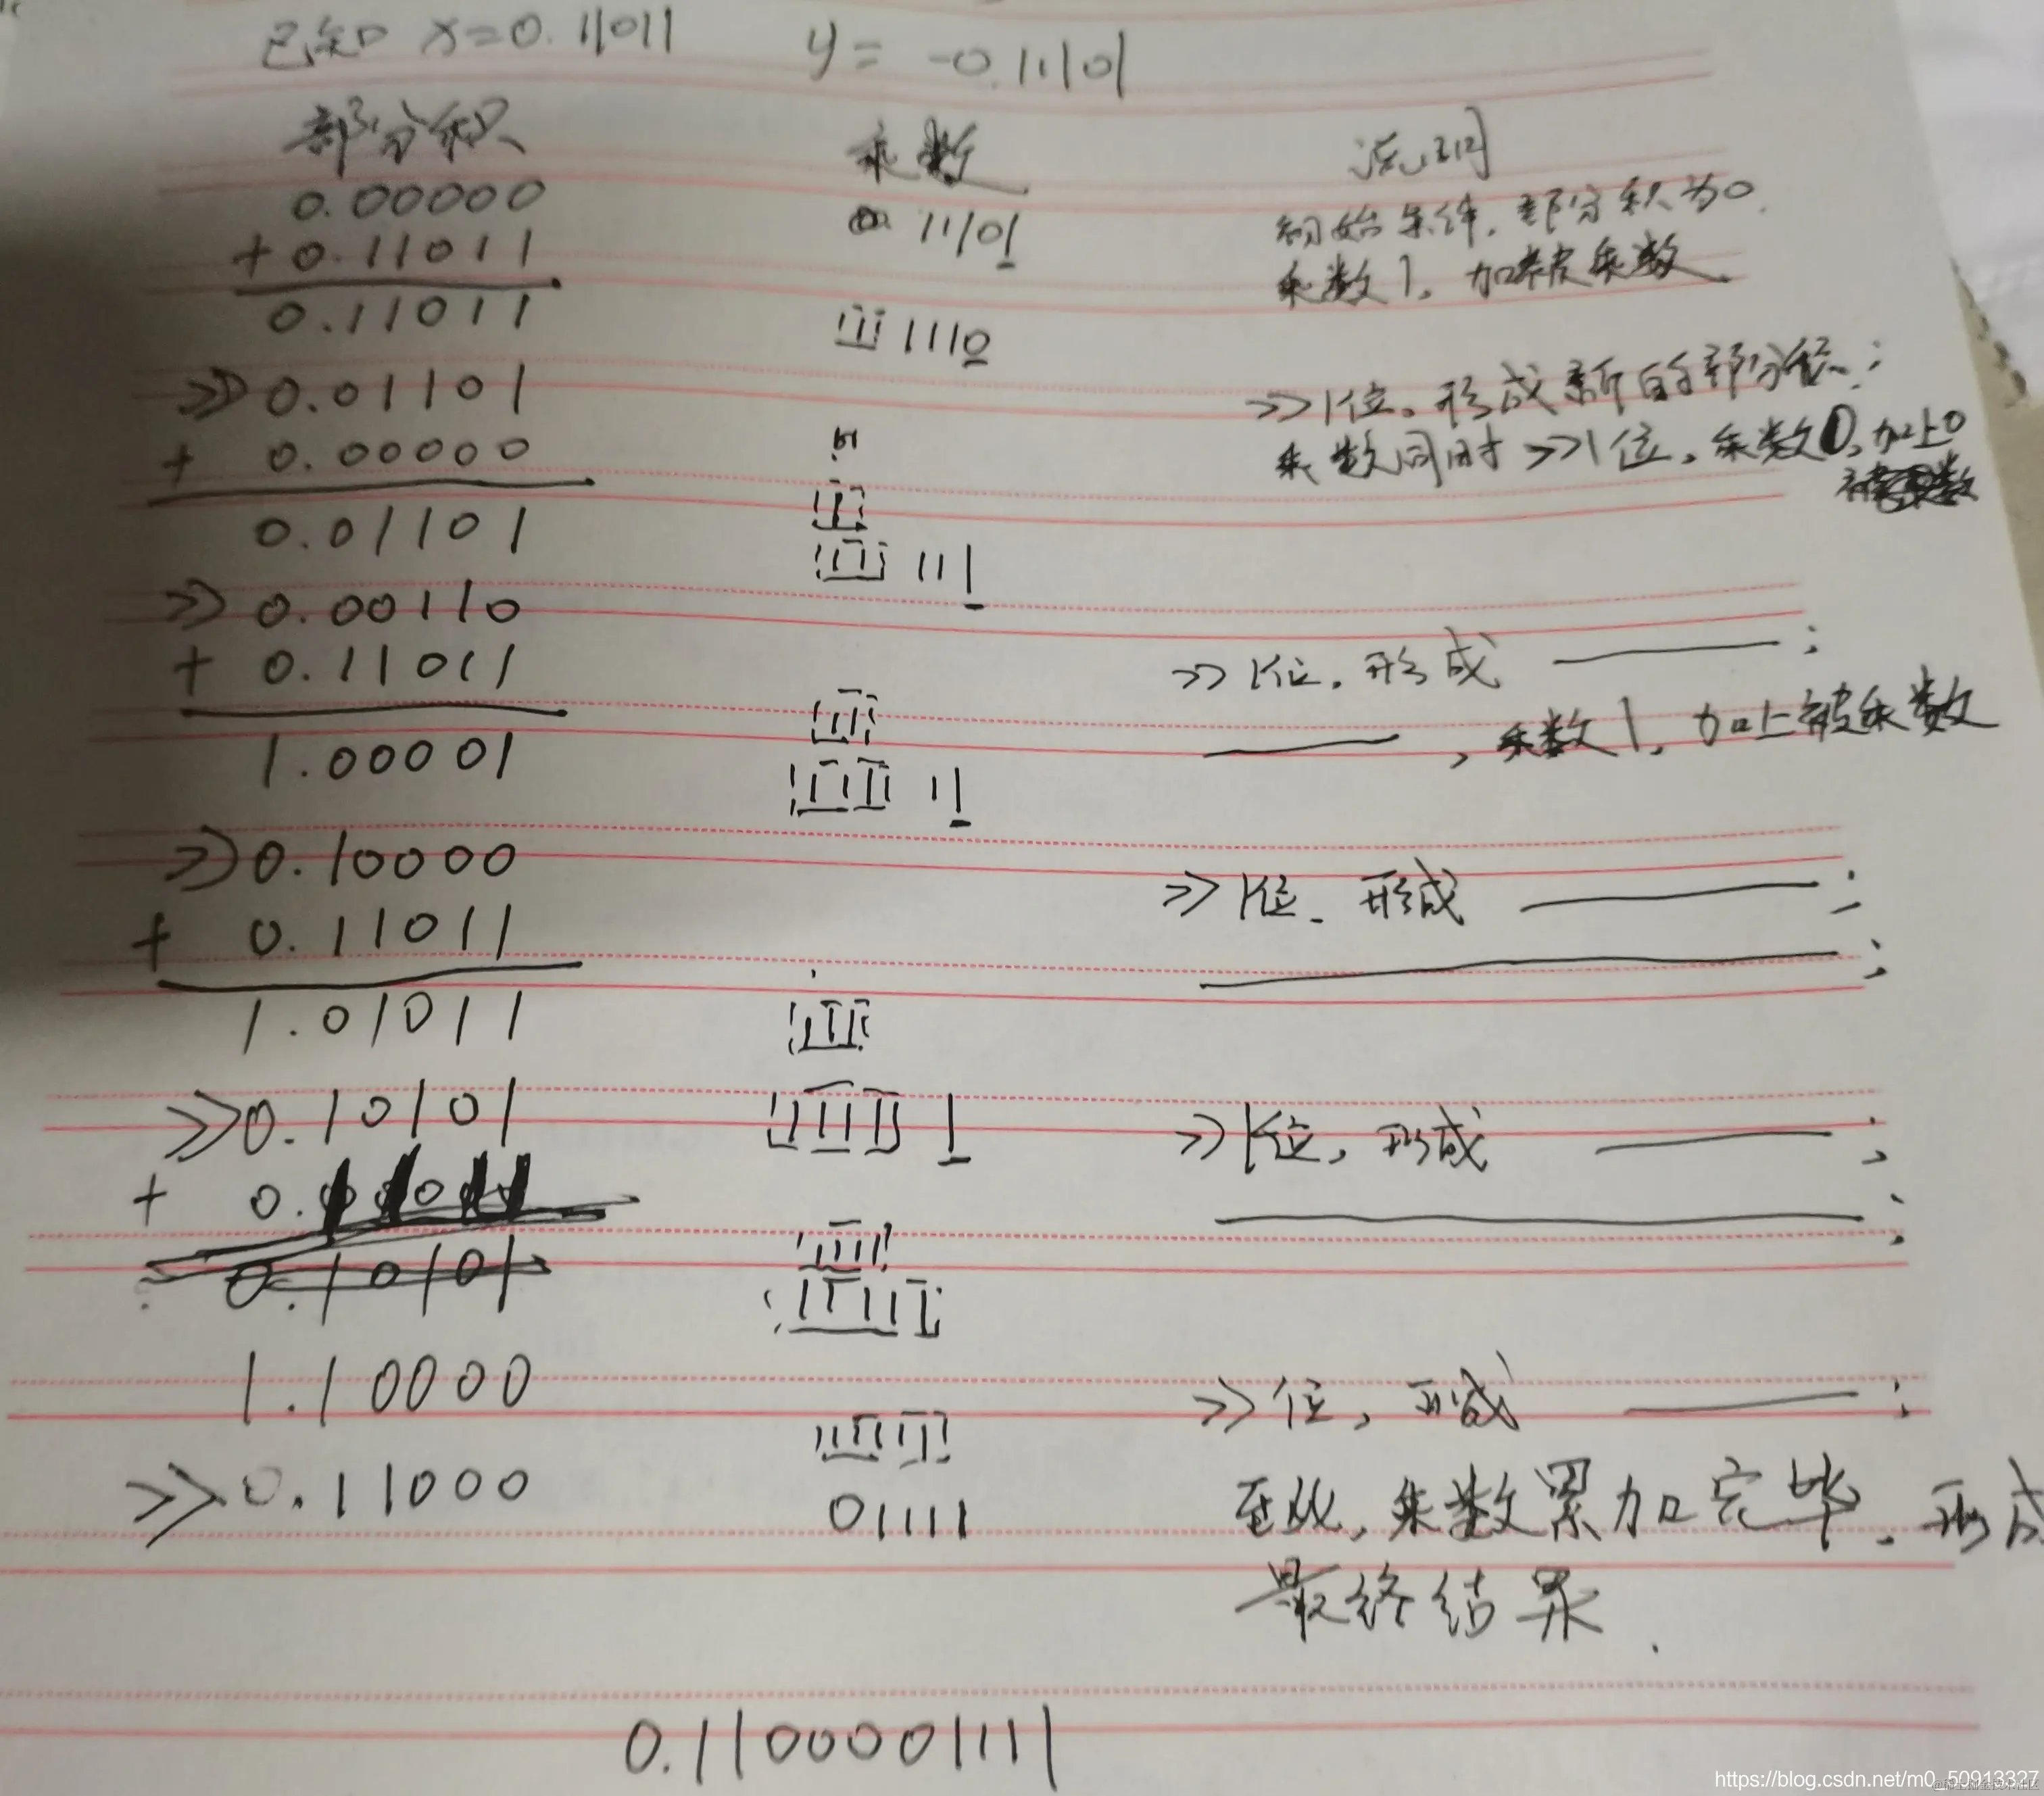 已知 x=0.11011 y= -0.11101
部分积 乘数 说明
0.00000 初始条件,部分积为0.
+ 0.11011 11101 乘数1,加被乘数.
0.11011 1110
>>0.01101 >>1位,形成新的部分积;
+ 0.00000 乘数同时>>1位,乘数0,加上0
0.01101 111
>>0.00110
+ 0.11011 >>1位,形成 ;
1.00001 ,乘数1,加上被乘数
11
>>0.10000 >>1位,形成 ;
+ 0.11011
1.01011
>>0.10101 1 >>1位,形成 ;
+ 0.11011
0.10101
1.10000 >>位,形成 ;
>>0.11000 01111 至此,乘数累加完毕,形成
最终结果.
0.1100001111
https://blog.csdn.net/m0_50913327